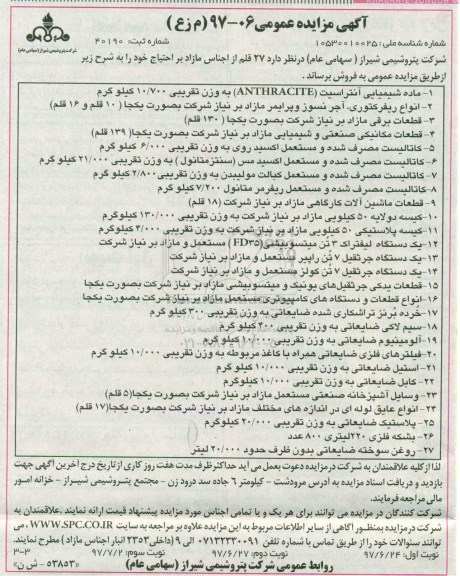 آگهی مزایده عمومی ۰۶-۹۷ (م زع)
شرکت پتروشیمی شیراز (سهامی عام)
شماره شناسه ملی: ۱۰۵۳۰۰۱۰۰۲۵
شماره ثبت: ۴۰۱۹۰
شرکت پتروشیمی شیراز ( سهامی عام) درنظر دارد ۲۷ قلم از اجناس مازاد بر احتیاج خود را به شرح زیر
ازطریق مزایده عمومی به فروش برساند .
۱- ماده شیمیایی آنتراسیت (ANTHRACITE) به وزن تقریبی ۱۰/۷۰۰ کیلو گرم
۲- انواع ریفرکتوری، آجر نسوز وپرایمر مازاد بر نیاز شرکت بصورت یکجا ( ۱۰ قلم و ۱۶ قلم)
۳- قطعات برقی مازاد بر نیاز شرکت بصورت یکجا ( ۱۳۰ قلم)
۴- قطعات مکانیکی صنعتی و شیمیایی مازاد بر نیاز شرکت بصورت یکجا( ۱۳۹ قلم)
۵- کاتالیست مصرف شده و مستعمل اکسید روی به وزن تقریبی ۶/۰۰۰ کیلو گرم
۶- کاتالیست مصرف شده و مستعمل اکسید مس (سنتزمتانول ) به وزن تقریبی ۲۱/۰۰۰ کیلو گرم
۷- کاتالیست مصرف شده و مستعمل کبالت مولیبدن به وزن تقریبی ۲/۸۰۰ کیلو گرم
۸- کاتالیست مصرف شده و مستعمل ریفرمر متانول ۷/۲۰۰ کیلو گرم
۹- قطعات ماشین آلات کارگاهی مازاد بر نیاز شرکت (۱۸ قلم)
۱۰- کیسه دولایه ۵۰ کیلویی مازاد بر نیاز شرکت به وزن تقریبی ۱۳۰/۰۰۰ کیلوگرم
۱۱- کیسه پلاستیکی ۵۰ کیلویی مازاد بر نیاز شرکت به وزن تقریبی ۴/۰۰۰ کیلوگرم
۱۲- یک دستگاه لیفتراک ۳ تن میتسوبیشی (FD۳۵) مستعمل و مازاد بر نیاز شرکت
۱۳- یک دستگاه جرثقیل ۷ تن راپیر مستعمل و مازاد بر نیاز شرکت
۱۴- یک دستگاه جرثقیل ۷ تن کولز مستعمل و مازاد بر نیاز شرکت
۱۵- قطعات یدکی جرثقیل‌های یونیک و میتسوبیشی مازاد بر نیاز شرکت بصورت یکجا
۱۶- انواع قطعات و دستگاه های کامپیوتری مستعمل مازاد بر نیاز شرکت بصورت یکجا
۱۷- خرده بُرنز تراشکاری شده ضایعاتی به وزن تقریبی ۳۰۰ کیلو گرم
۱۸- سیم لاکی ضایعاتی به وزن تقریبی ۴۰۰ کیلو گرم
۱۹- آلومینیوم ضایعاتی به وزن تقریبی ۱۰/۰۰۰ کیلو گرم
۲۰- فیلترهای فلزی ضایعاتی همراه با کاغذ مربوطه به وزن تقریبی ۱۰/۰۰۰ کیلو گرم
۲۱- استیل ضایعاتی به وزن تقریبی ۱۰/۰۰۰ کیلو گرم
۲۲- کابل ضایعاتی به وزن تقریبی ۱۰/۰۰۰ کیلوگرم
۲۳- وسایل آشپزخانه صنعتی مستعمل مازاد بر نیاز شرکت بصورت یکجا(۵ قلم)
۲۴- انواع عایق لوله ای در اندازه های مختلف مازاد بر نیاز شرکت بصورت یکجا(۱۷ قلم)
۲۵- پلاستیک ضایعاتی به وزن تقریبی ۲۰/۰۰۰ کیلوگرم
۲۶- بشکه فلزی ۲۲۰لیتری ۸۰۰ عدد
۲۷- روغن سوخته ضایعاتی بدون ظرف حدود ۲۰/۰۰۰ لیتر
لذا از کلیه علاقمندان به شرکت درمزایده دعوت بعمل می آید حداکثر ظرف مدت هفت روز کاری از تاریخ درج آخرین آگهی جهت
بازدید و دریافت اسناد مزایده به آدرس مرودشت - کیلومتر ۶ جاده سد درود زن - مجتمع پتروشیمی شیراز - خزانه امور
مالی مراجعه فرمایند.
شرکت کنندگان در مزایده می توانند برای هر یک و یا تمامی اجناس مورد مزایده پیشنهاد قیمت ارائه نمایند .علاقمندان به
شرکت درمزایده بمنظور آگاهی از سایر اطلاعات مربوط به این مزایده علاوه بر مراجعه به سایت WWW.SPC.CO.IR ، می
توانند سئوالات خود را از طریق تماس با شماره تلفن ۰۷۱۳۲۳۳۰۰۹۱ الی ۹ (داخلی ۲۳۵۳ انبار اجناس مازاد ) مطرح نمایند.
نوبت اول: ۹۷/۶/۲۴ نوبت دوم: ۹۷/۶/۲۷ نوبت سوم: ۹۷/۷/۲ ۳-۳
روابط عمومی شرکت پتروشیمی شیراز (سهامی عام) «۵۳۸۵۳ - ش ن»